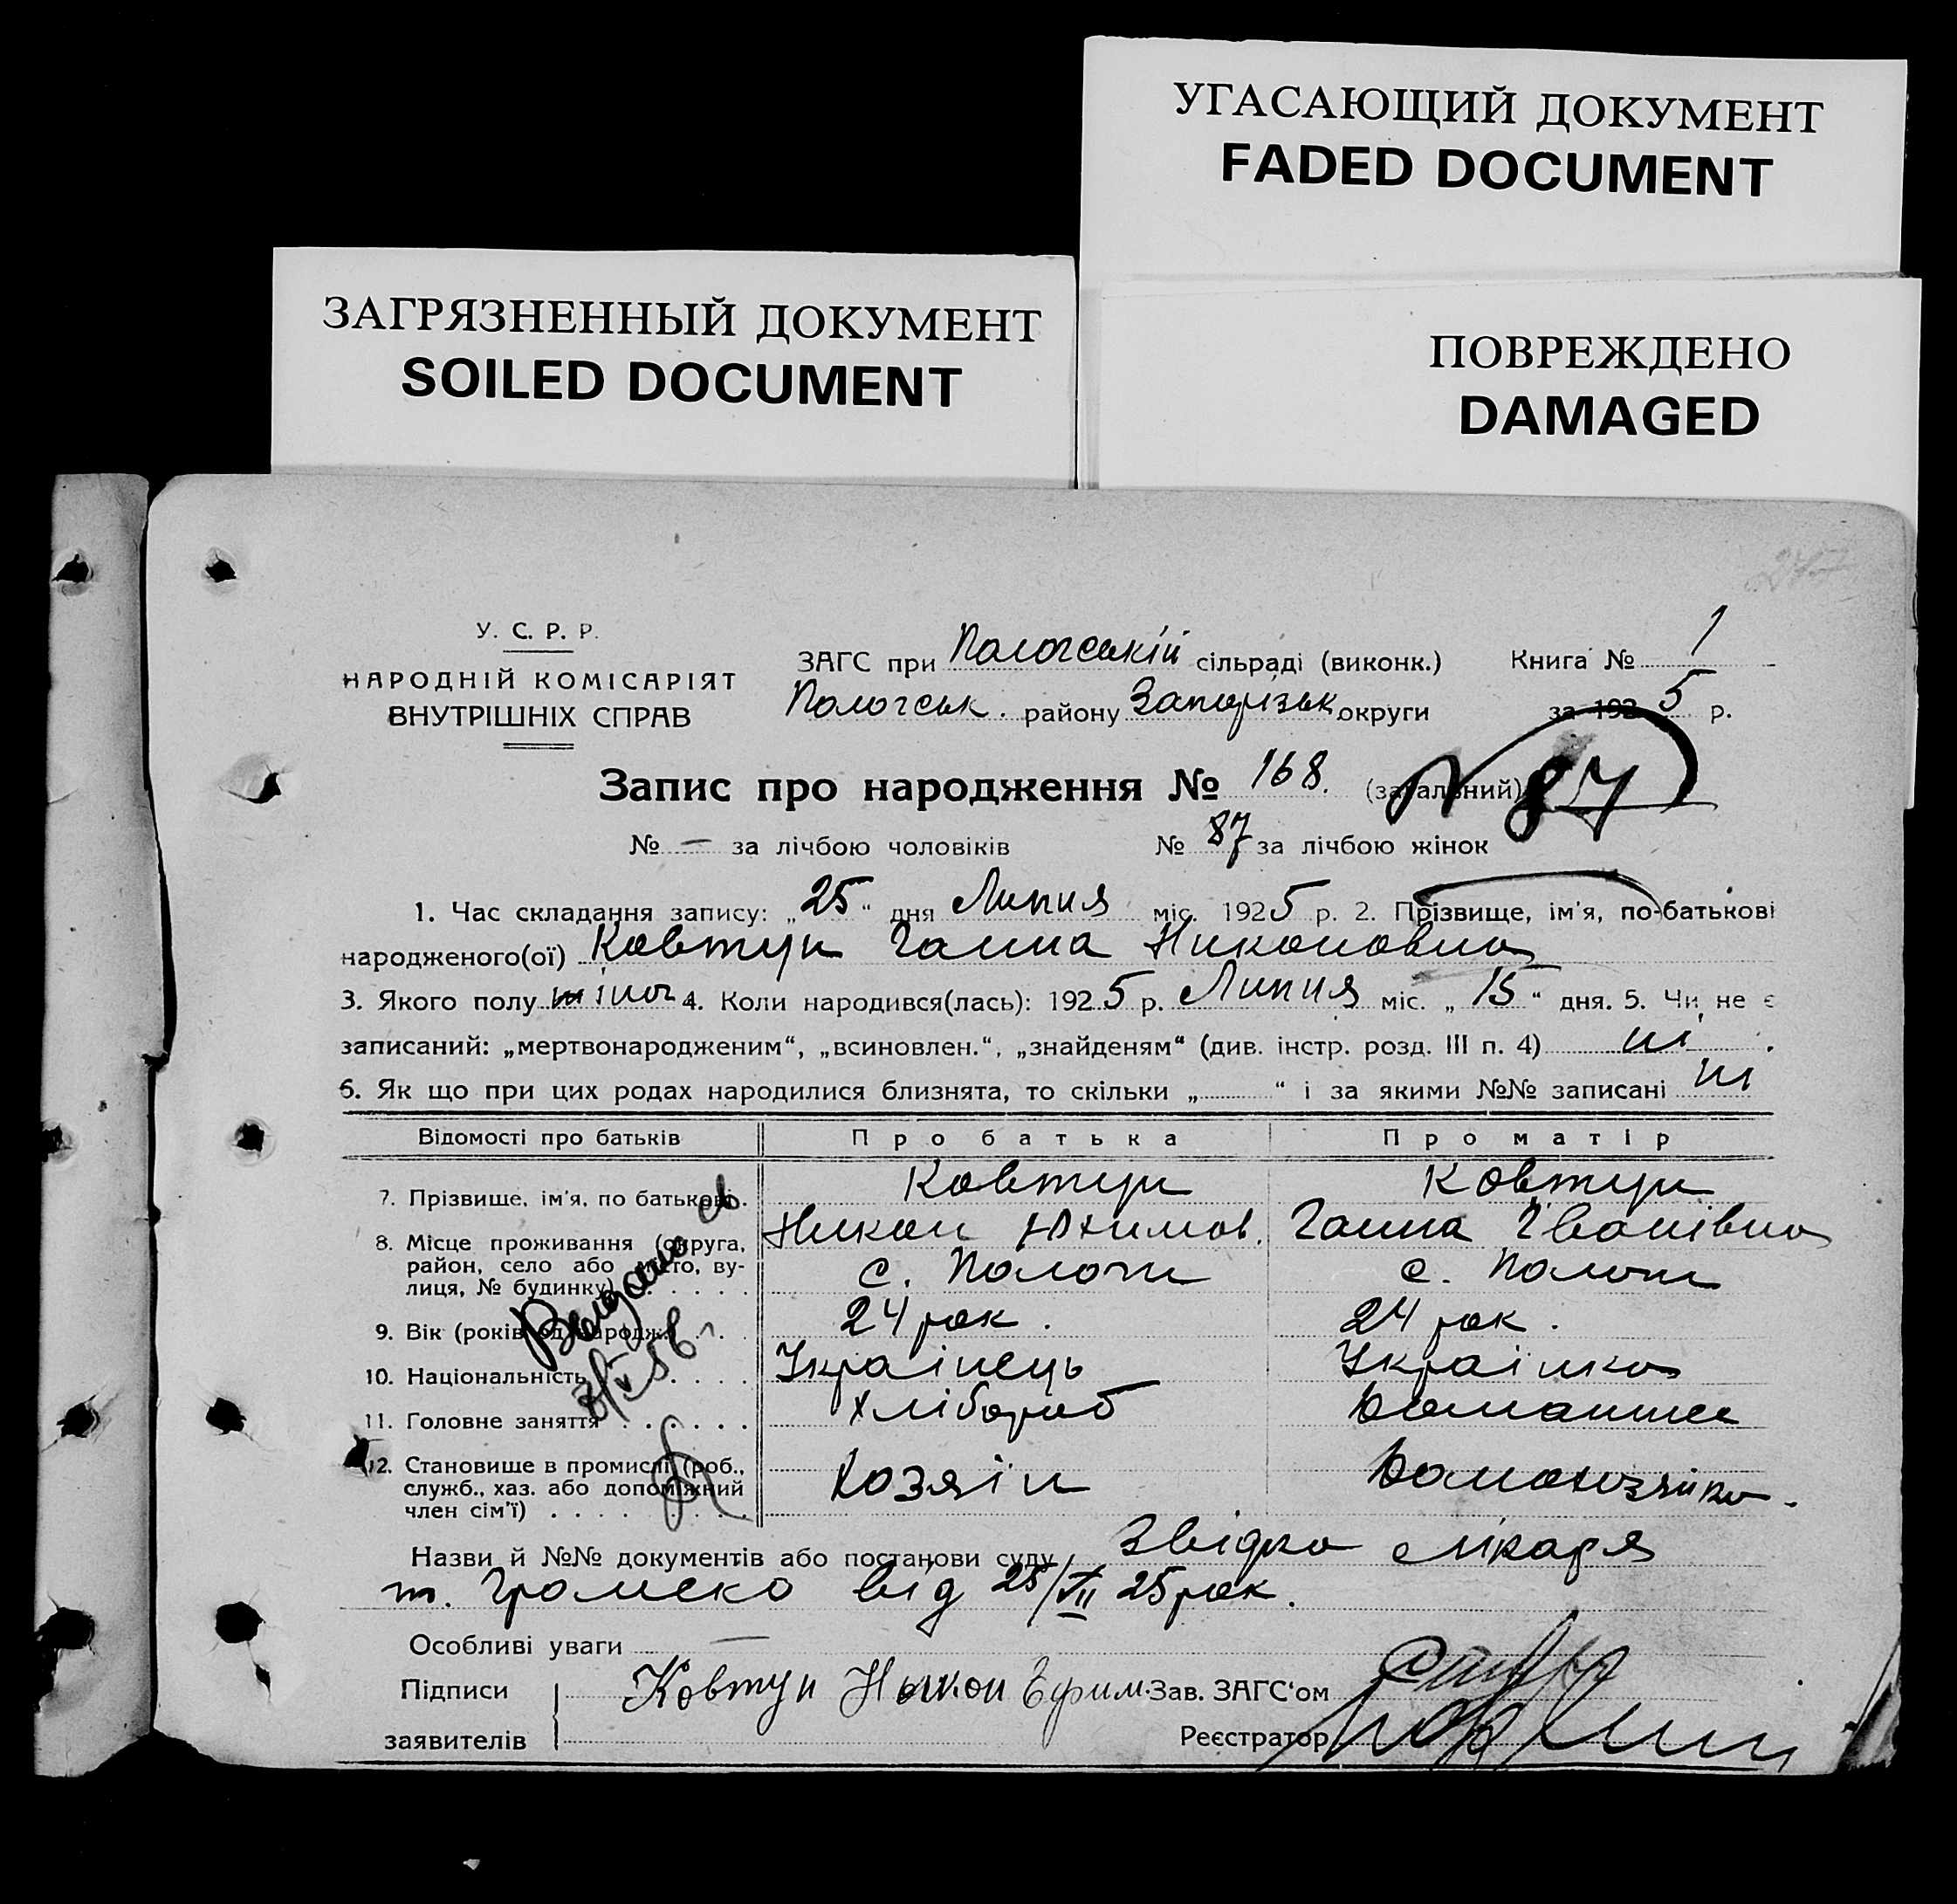 УГАСАЮЩИЙ ДОКУМЕНТ
FADED DOCUMENT
ЗАГРЯЗНЕННЫЙ ДОКУМЕНТ
SOILED DOCUMENT
ПОВРЕЖДЕНО
DAMAGED
У. С. Р. Р.
НАРОДНІЙ КОМІСАРІЯТ
ВНУТРІШНІХ СПРАВ
ЗАГС при Пологській сільраді (виконк.) Книга № 1
Пологськ. району Запорізьк. округи за 1925 р.
Запис про народження № 168. (загальний) № 87
№ — за лічбою чоловіків № 87 за лічбою жінок
1. Час складання запису: „25“ дня Липня міс. 1925 р. 2. Прізвище, ім'я, по-батькові
народженого(ої) Ковтун Ганна Никоновна
3. Якого полу жіноч 4. Коли народився(лась): 1925 р. Липня міс. „15“ дня. 5. Чи не є
записаний: „мертвонародженим“, „всиновлен.“, „знайденям“ (див. інстр. розд. III п. 4) ні
6. Як що при цих родах народилися близнята, то скільки „ “ і за якими №№ записані ні
Відомості про батьків Про батька Про матір
7. Прізвище, ім'я, по батькові. Ковтун Ковтун
Никон Юхимов. Ганна Іванівна
8. Місце проживання (округа, район, село або місто, ву-
лиця, № будинку) с. Пологи с. Пологи
9. Вік (років од народж.) 24 рок. 24 рок.
10. Національність Українець Українка
11. Головне заняття Хлібороб Домашнє
12. Становище в промислі (роб.,
служб., хаз. або допоміжний
член сім'ї) Хозяїн Домохозяйка.
3/V 56 г.
Назви й №№ документів або постанови суду Звідка лікаря
т. Громеко від 25/VII 25 рок.
Особливі уваги —
Підписи Ковтун Никон Ефим. Зав. ЗАГС'ом
заявителів Реєстратор